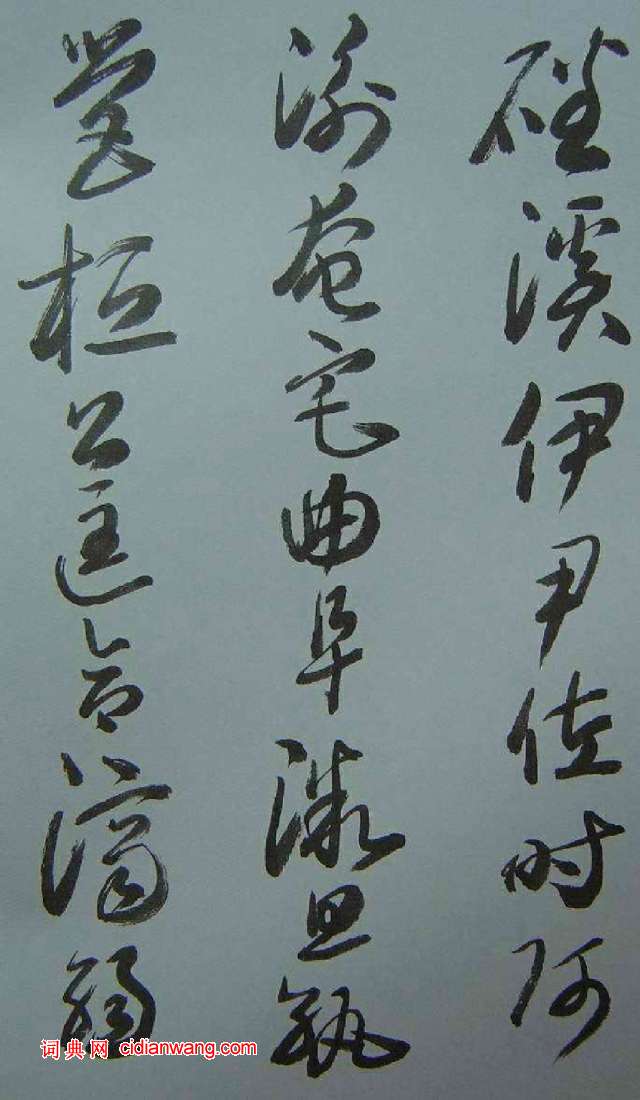 磻溪伊尹佐时阿
衡奄宅曲阜微旦孰
营桓公匡合济弱
词典网 cidianwang.com